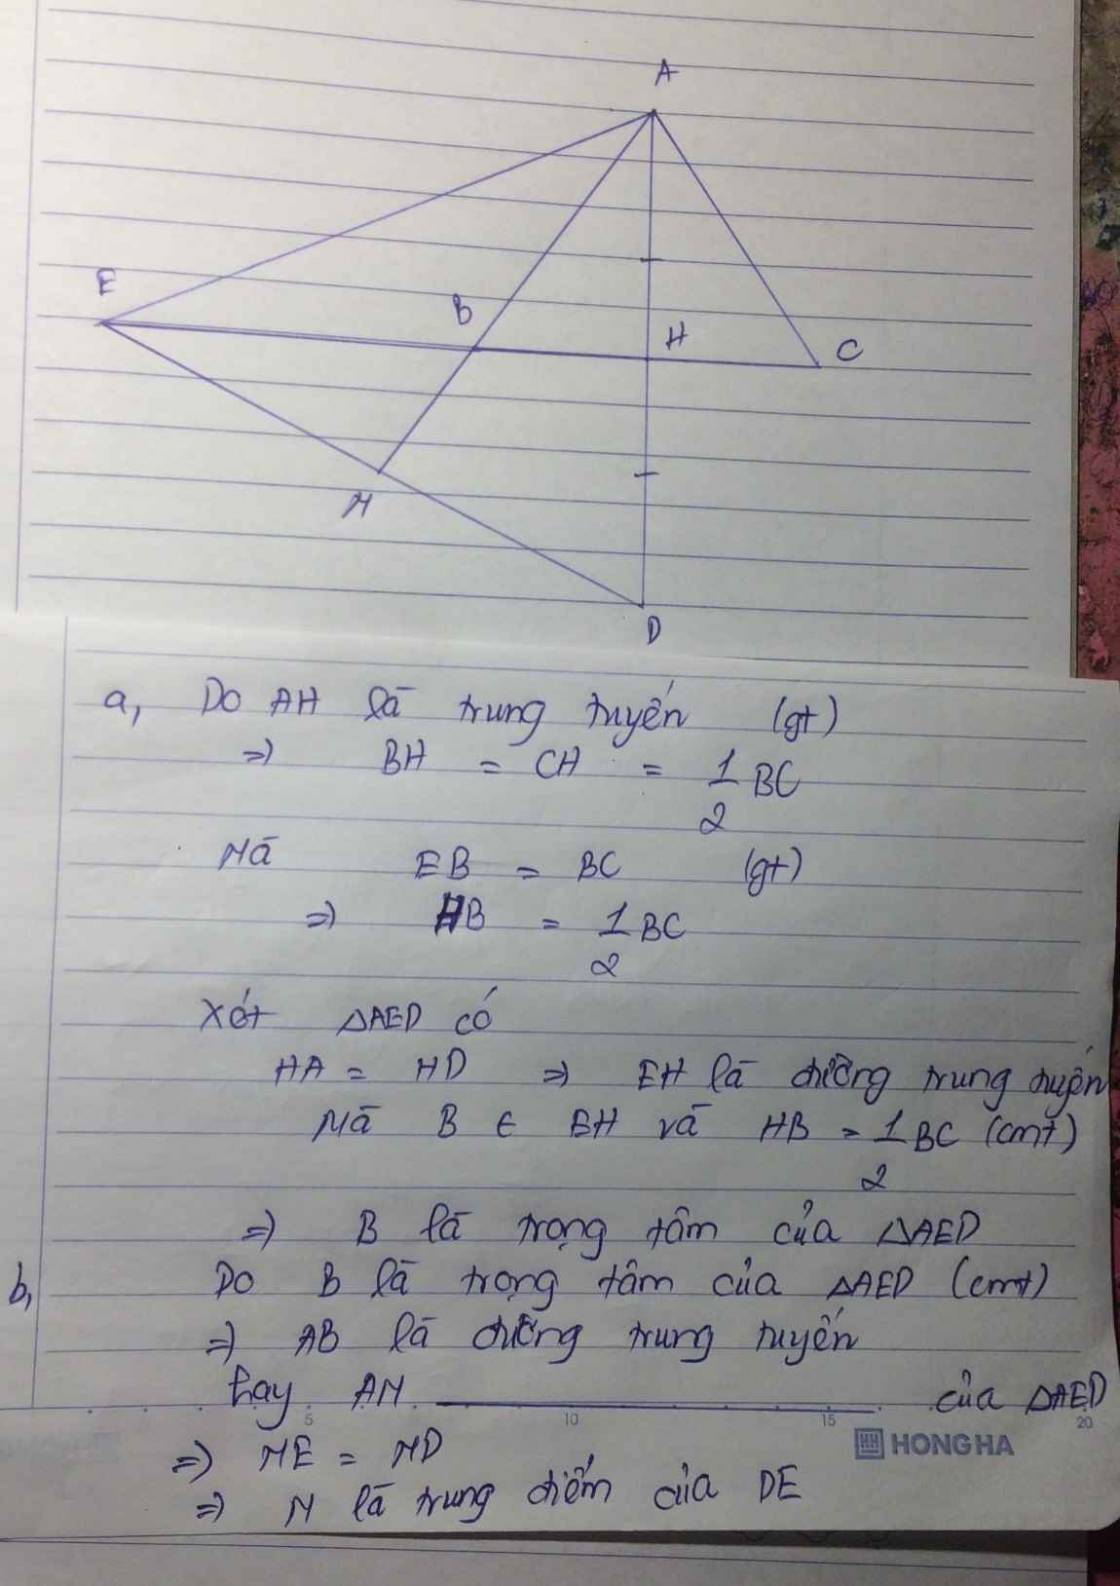 A
E
B
H
C
M
D
a, Do AH là trung tuyến (gt)
=> BH = CH = 1/2 BC
Mà EB = BC (gt)
=> HB = 1/2 BC
Xét △AED có
HA = HD => EH là đường trung tuyến
Mà B ∈ EH và HB = 1/2 BC (cmt)
=> B là trọng tâm của △AED
b, Do B là trọng tâm của △AED (cmt)
=> AB là đường trung tuyến
hay AM ———————— của △AED
5 10 15 20
HONG HA
=> ME = MD
=> M là trung điểm của DE